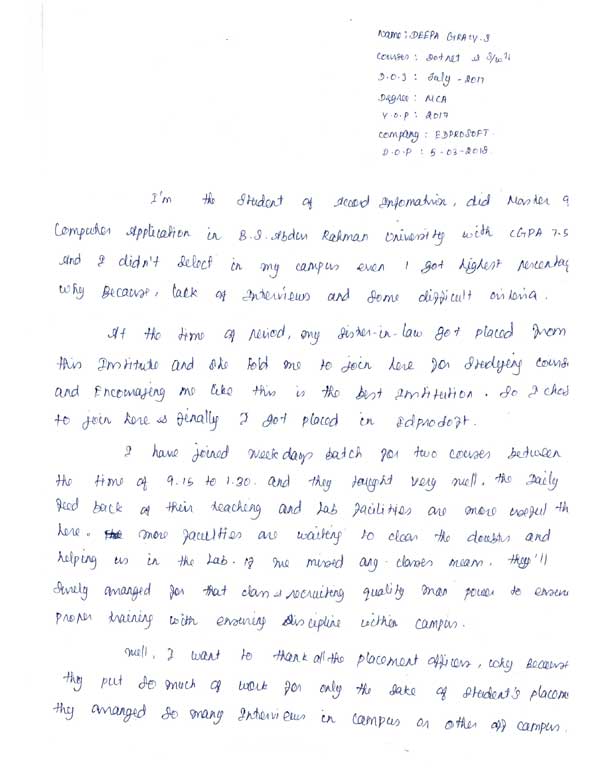 Name: DEEPA GIRACY.S
Courses: Dotnet & S/w
D.O.J: July - 2017
Degree: MCA
Y.O.P: 2017
company: EDPROSOFT.
D.O.P: 5-03-2018
I'm the Student of Accord Infomation, did Master
Computer Application in B.S.Abdur Rahman University with CGPA 7.5
And I didn't Select in my campus even I got highest Percentag
why Because, lack of Interviews and Some difficult criteria.
At the time of period, my Sister-in-law Got placed from
this Institute and She told me to join here for Studying cours
and Encouraging me like this is the best Institution. So I
to join here & finally I got placed in Edprosoft.
I have joined Weekdays Batch for two courses between
the time of 9.15 to 1.30. and they taught very well. the Daily
feed back of their teaching and Lab facilities are more useful th
here. more faculties are waiting to clear the doubts and
helping us in the Lab. If me missed any classes means. they'll
Surely arranged for that class & recruiting quality man power to ensure
proper training with ensuring Discipline within campus.
Well, I want to thank all the placement officers, why Because
they put So much of work for only the Sake of Student's placeme
they arranged So many Interviews in campus or other off campus.